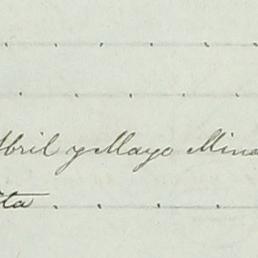 Abril y Mayo Mina
ta . . . .